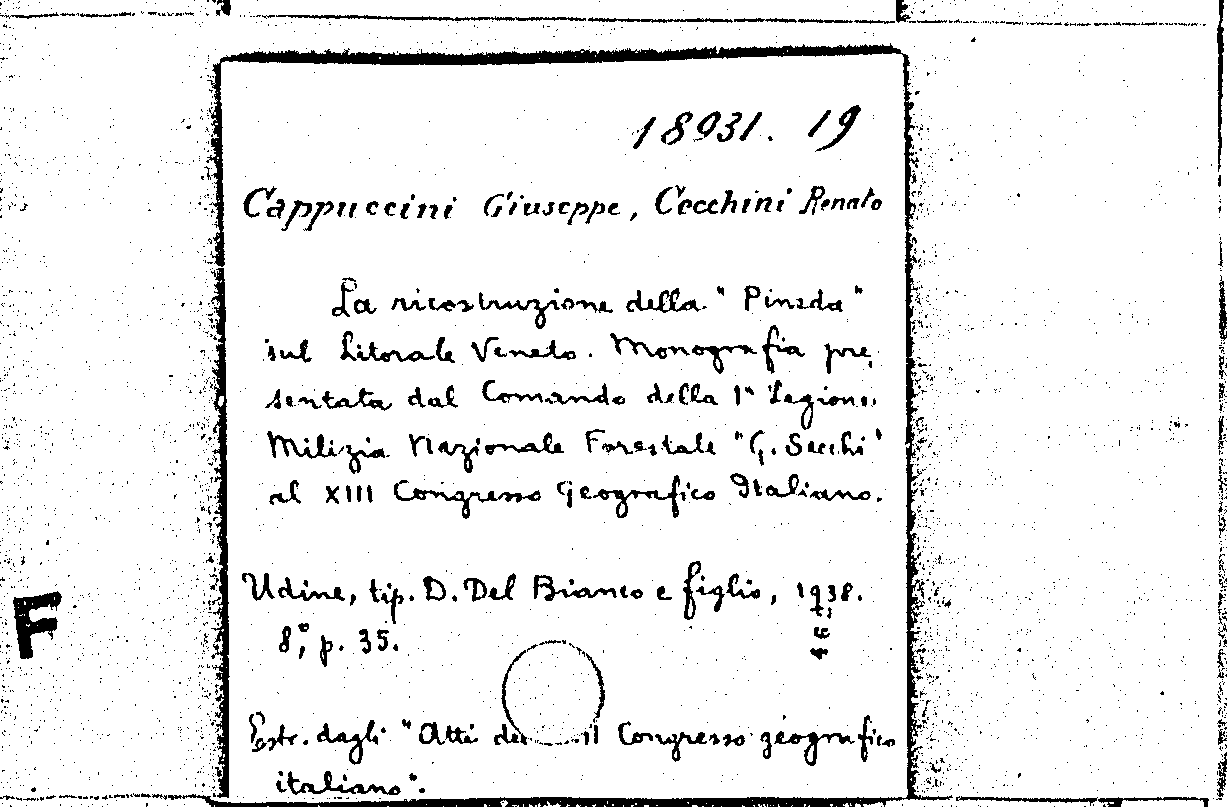 18931. 19
Cappuccini Giuseppe, Cecchini Renato
La ricostruzione della "Pineda"
sul Litorale Veneto. Monografia pre,
sentata dal Comando della 1ª Legione
Milizia Nazionale Forestale "G. Secchi"
al XIII Congresso Geografico Italiano.
Udine, tip. D. Del Bianco e figlio, 1938.
8°, p. 35.
F
Estr. dagli "Atti del Congresso geografico
italiano".